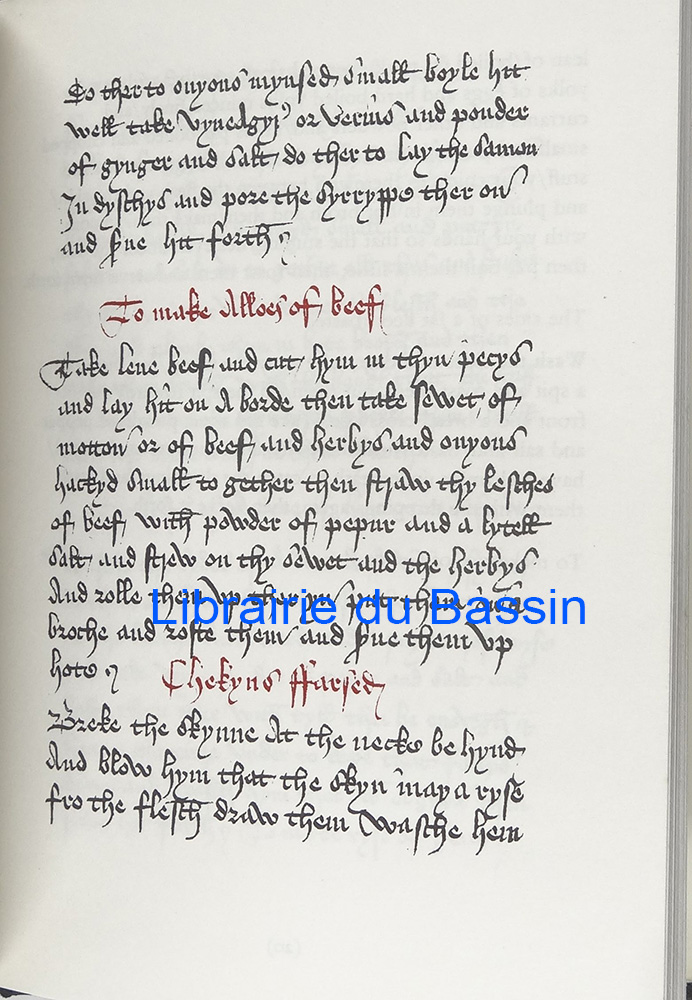 Do ther to onyons mynsed small boyle hit
well take vynedgyr or verius and ponder
of gynger and salt do ther to lay the samon
In dyschys and pore the syryppe ther on
and serue hit forth
To make Alloes of beef
Take lene beef and cut hym in thyn pecys
and lay hit on A borde then take sewet of
motton or of beef and herbys and onyons
hackyd small to gether then straw thy lesches
of beef with powder of pepur and a lytell
salt and strew on thy sewet and the herbys
And rolle them vp ther yn put them
Librairie du Bassin
broche and roste them and serue them vp
hote
Chekyns ffarsed
Breke the skynne At the necke be hynd
And blow hym that the skyn may a ryse
fro the flesch draw them wasche hem